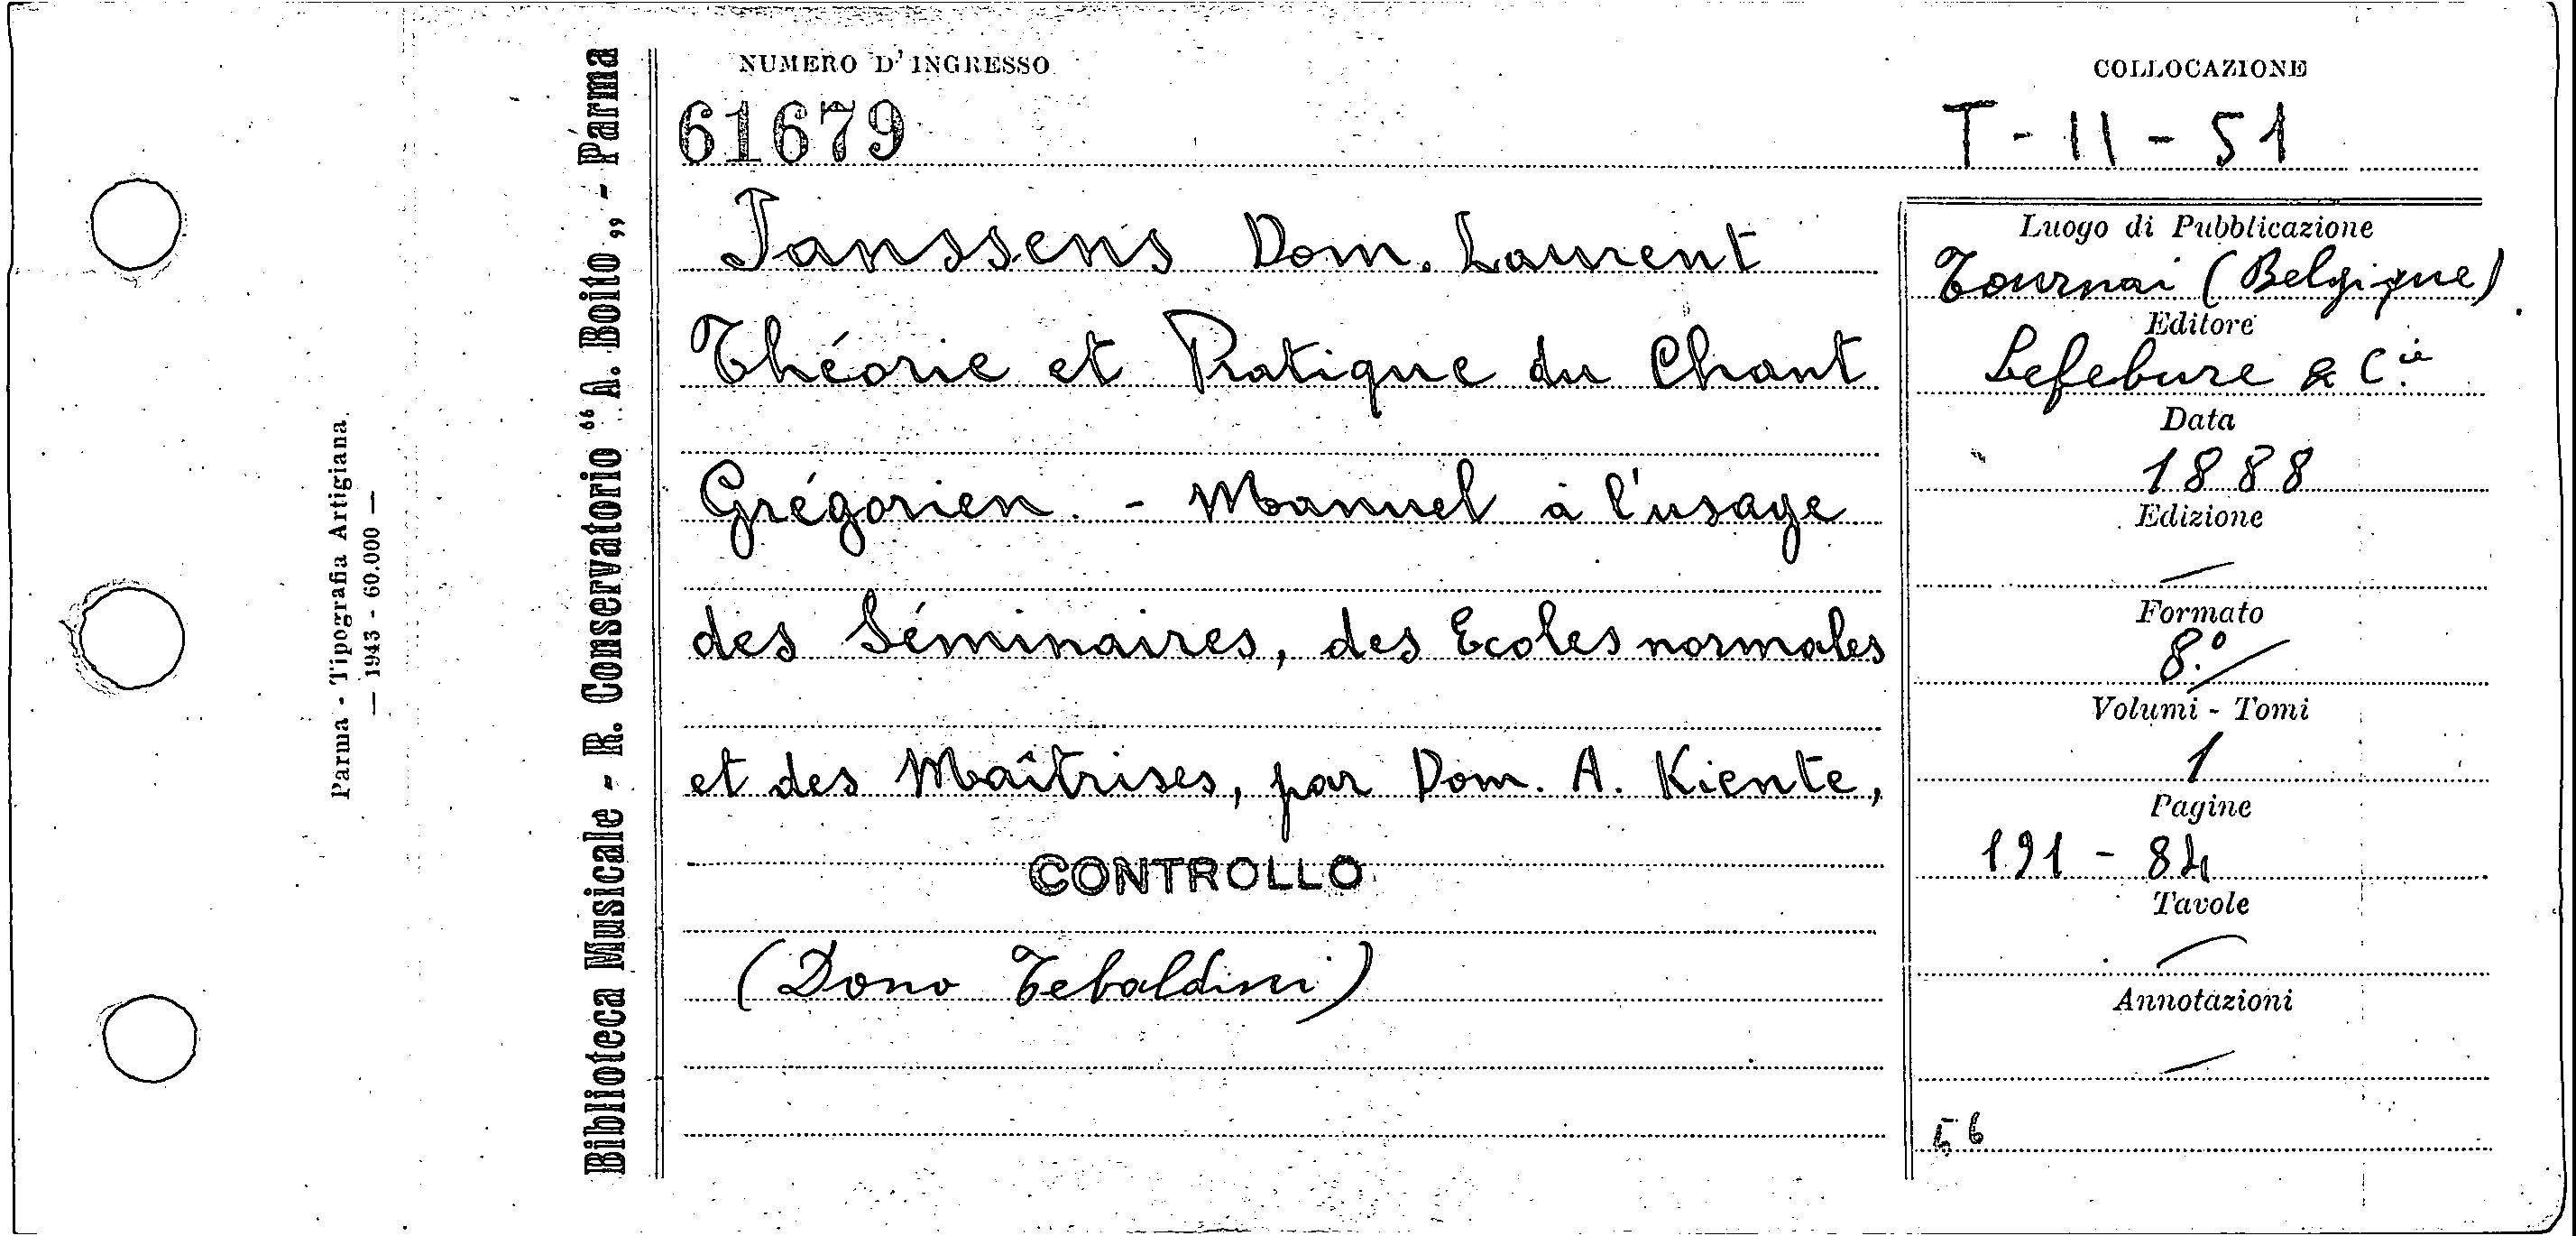 NUMERO D'INGRESSO
61679
COLLOCAZIONE
T - II - 51
Janssens Dom. Laurent
Théorie et Pratique du Chant
Grégorien. - Manuel à l'usage
des Séminaires, des Ecoles normales
et des Maîtrises, par Dom. A. Kiente,
CONTROLLO
(Dono Tebaldini)
Luogo di Pubblicazione
Tournai (Belgique)
Editore
Lefebure & C.ie
Data
1888
Edizione
Formato
8.º
Volumi - Tomi
1
Pagine
191 - 84
Tavole
Annotazioni
56
Biblioteca Musicale - R. Conservatorio “A. Boito„ - Parma
Parma - Tipografia Artigiana.
— 1943 - 60.000 —